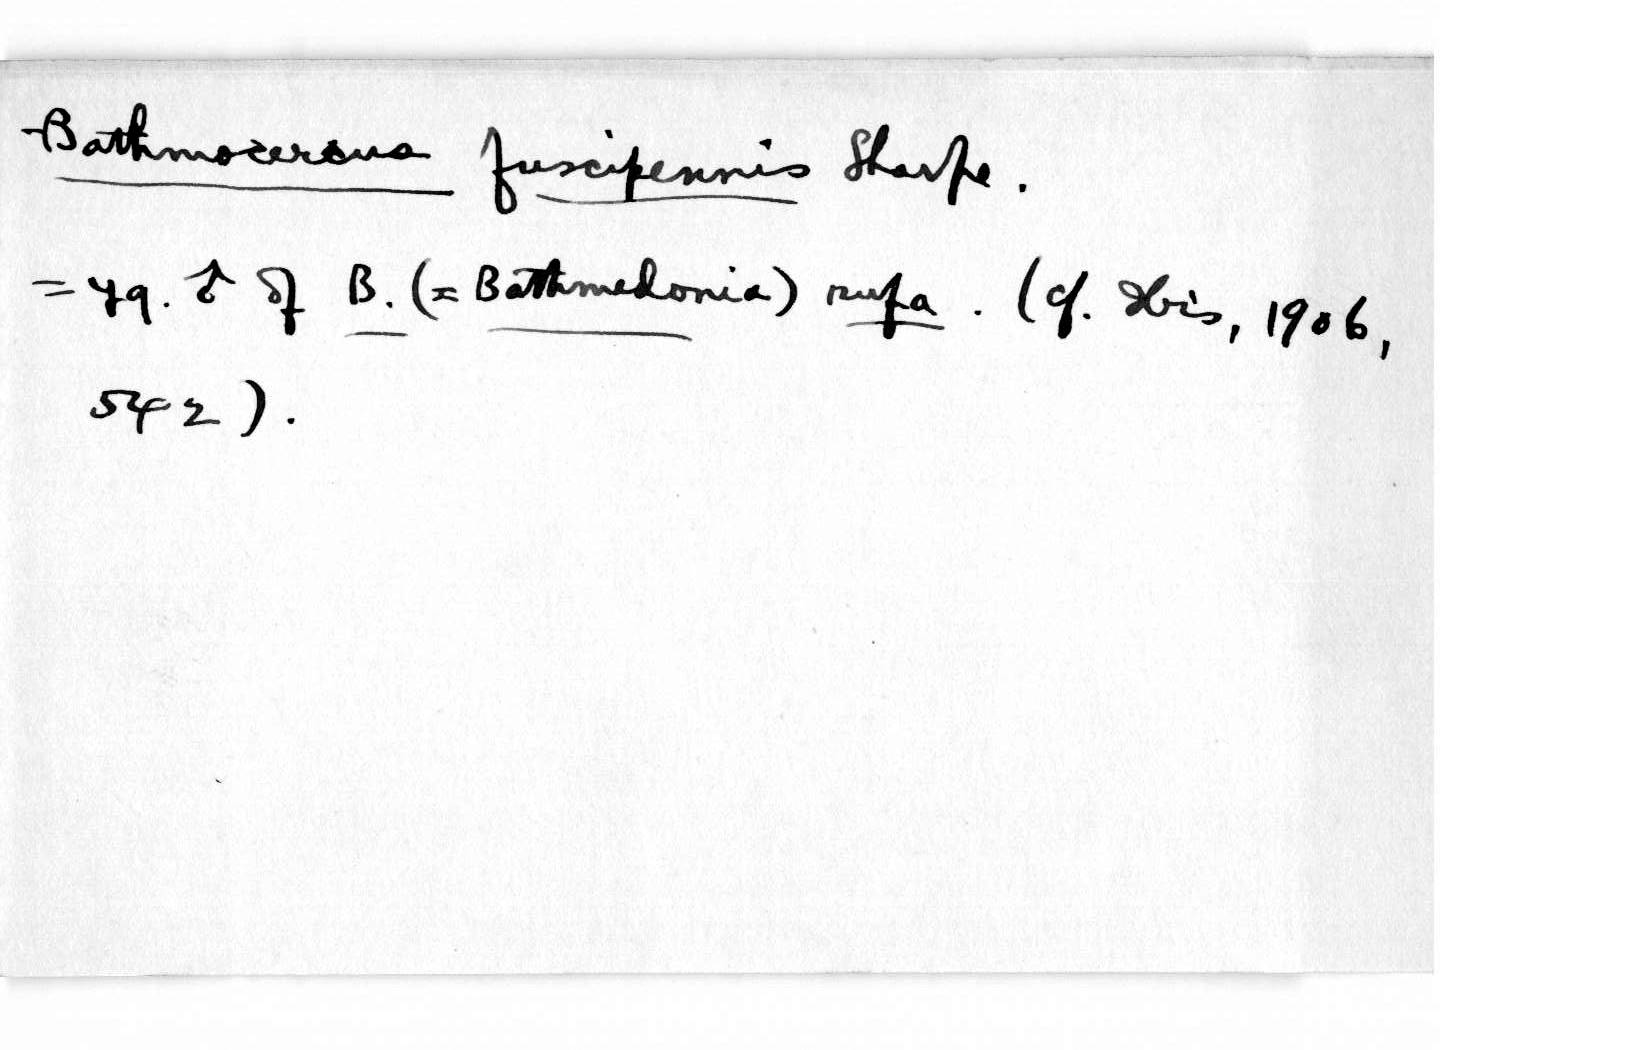 Bathmocercus fuscipennis Sharpe.
= yg. ♂ of B. (= Bathmedonia) rufa. (cf. Ibis, 1906,
542).